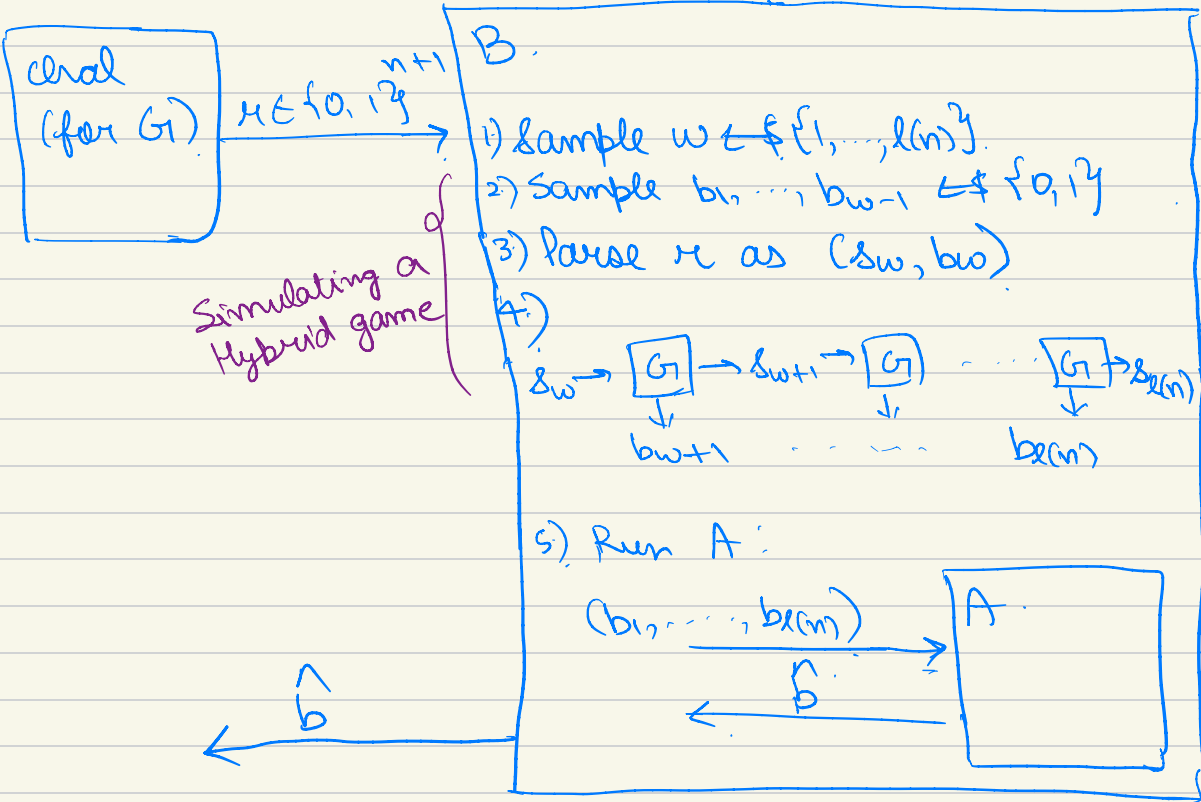 chal
(for G)
r ∈ {0,1}^{n+1}
B.
1) Sample w ←$ {1,...,l(n)}.
2) Sample b₁, ..., b_{w-1} ←$ {0,1}
3) Parse r as (s_w, b_w)
Simulating a
Hybrid game
4)
s_w → G → s_{w+1} → G ..... G → s_{l(n)}
↓ ↓ ↓
b_{w+1} ..... b_{l(n)}
5) Run A:
(b₁, ....., b_{l(n)})
A.
b̂
b̂